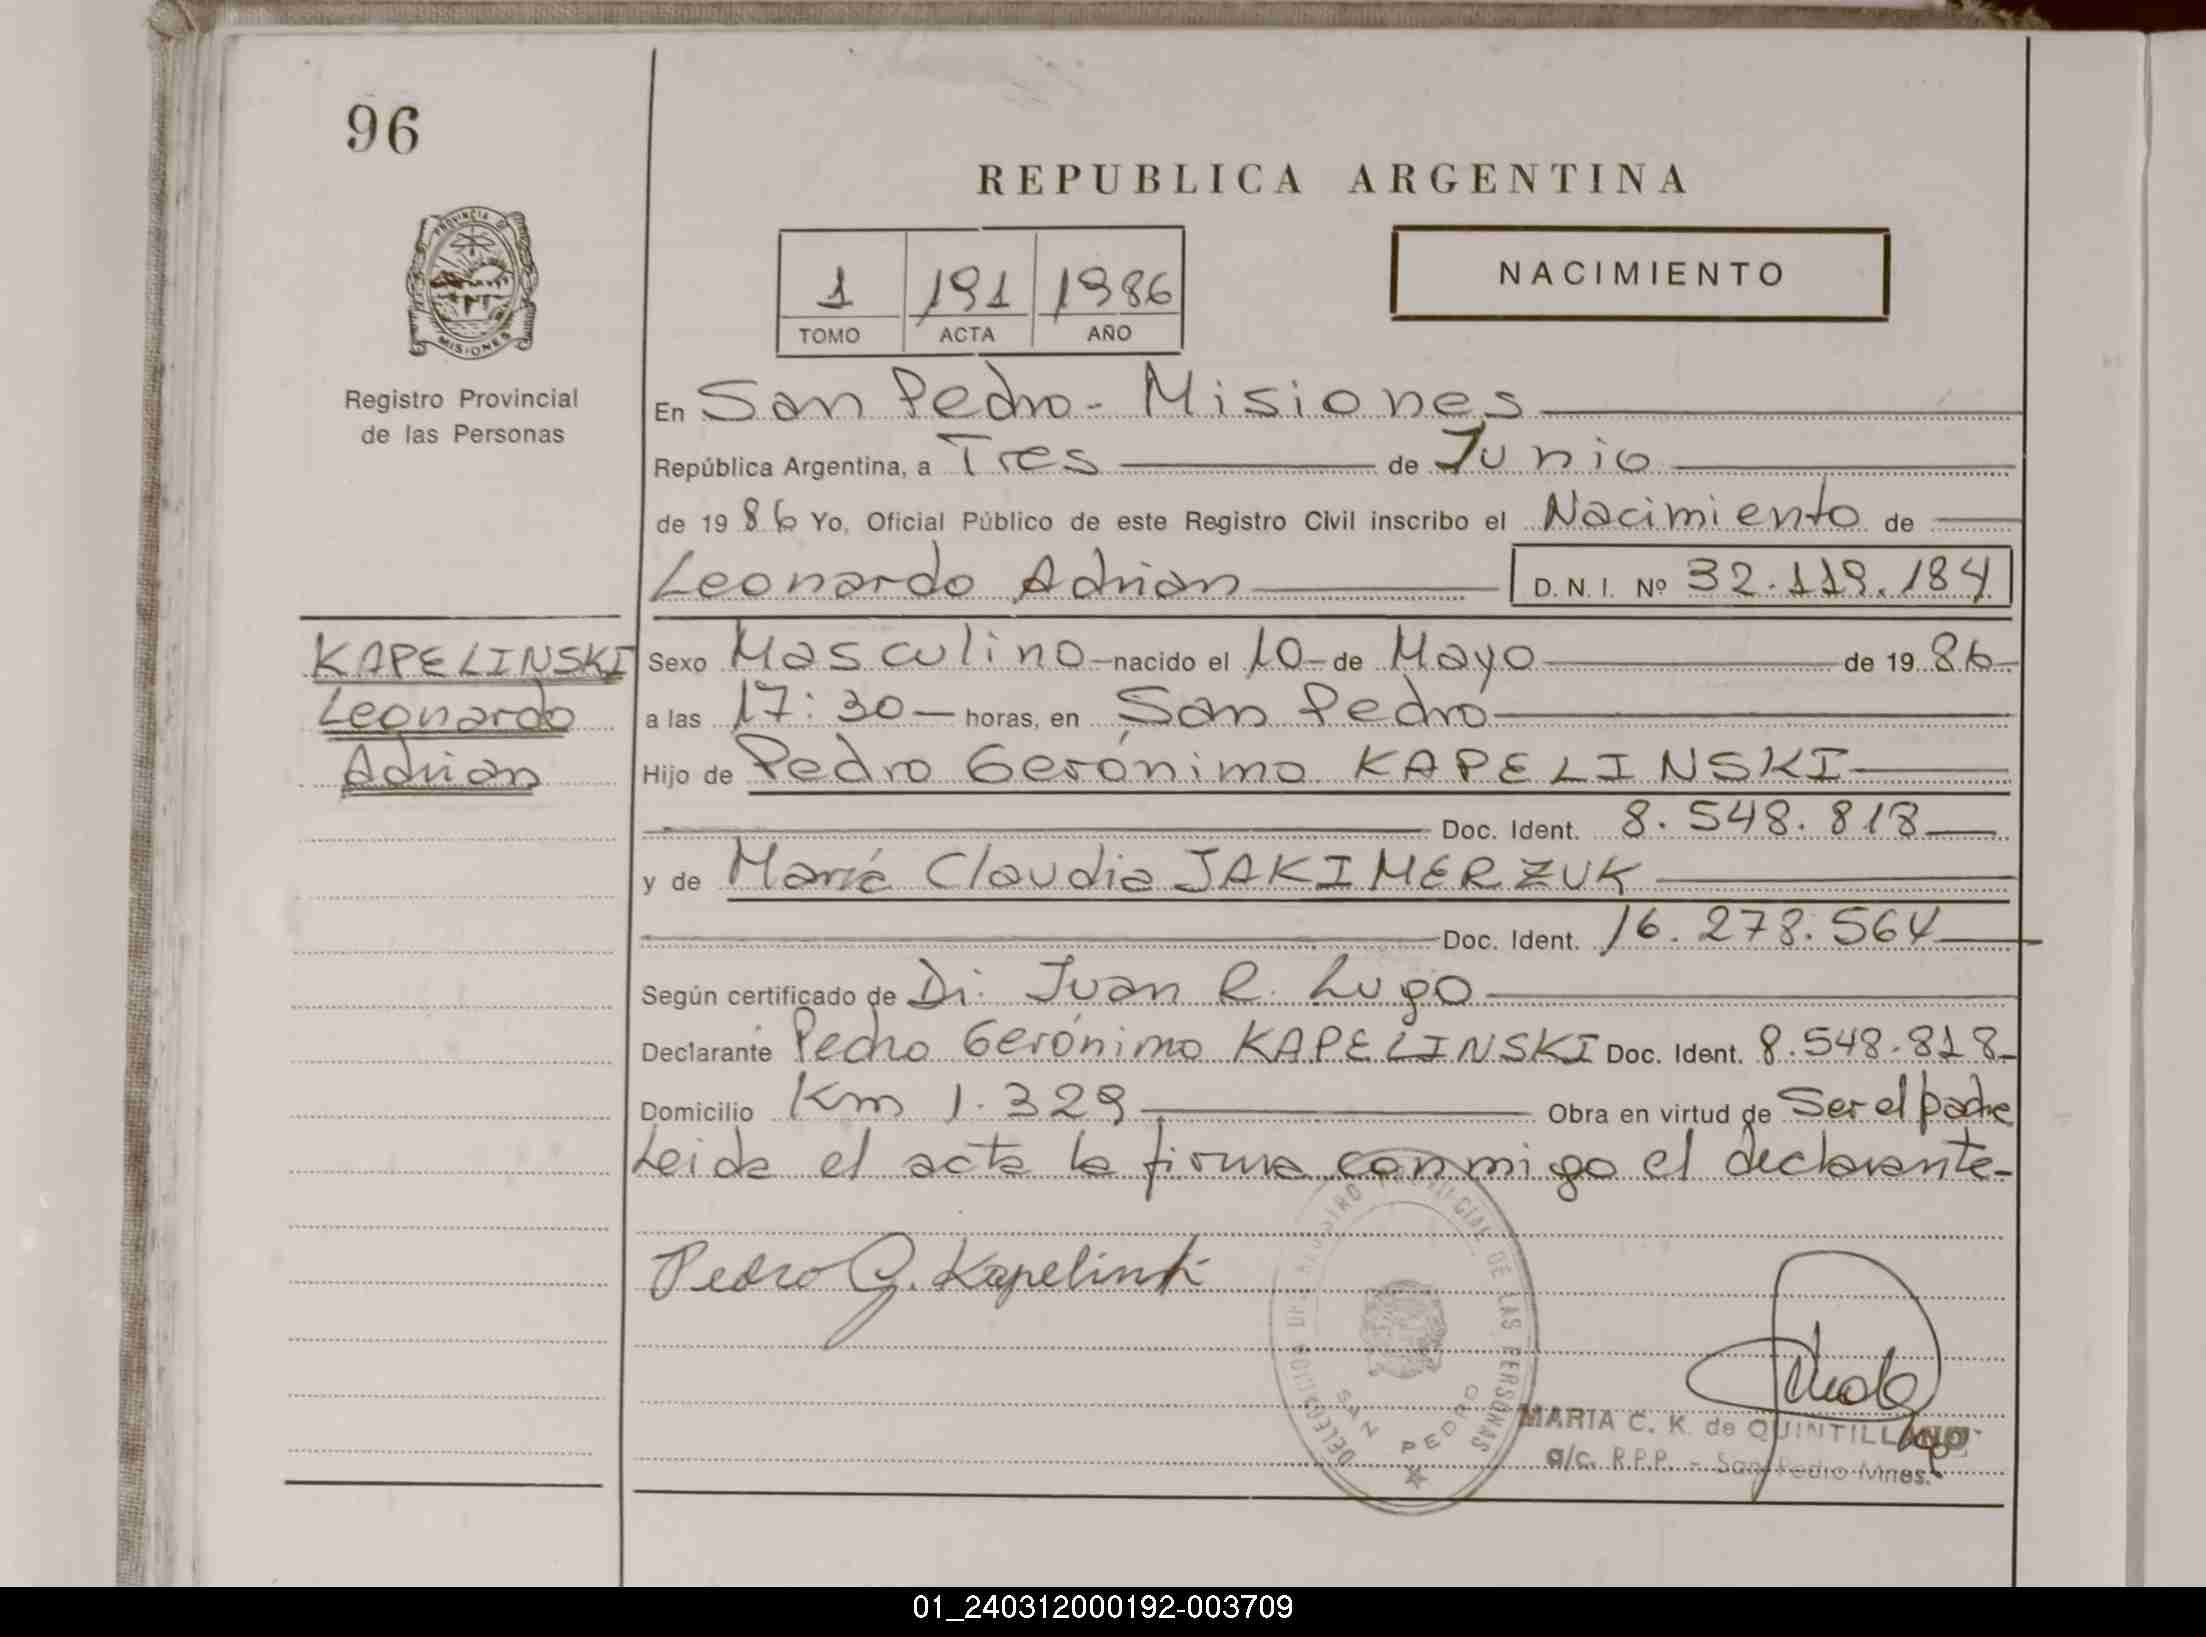 96
REPUBLICA ARGENTINA
PROVINCIA DE
MISIONES
Registro Provincial
de las Personas
1 191 1986
TOMO ACTA AÑO
NACIMIENTO
En San Pedro - Misiones
República Argentina, a Tres de Junio
de 19 86 Yo, Oficial Público de este Registro Civil inscribo el Nacimiento de
Leonardo Adrian D.N.I. Nº 32.119.184
KAPELINSKI
Leonardo
Adrian
Sexo Masculino nacido el 10 de Mayo de 19 86
a las 17:30 horas, en San Pedro
Hijo de Pedro Gerónimo KAPELINSKI
Doc. Ident. 8.548.818
y de María Claudia JAKIMERZUK
Doc. Ident. 16.278.564
Según certificado de Dr. Juan R. Lugo
Declarante Pedro Gerónimo KAPELINSKI Doc. Ident. 8.548.818
Domicilio Km 1.329 Obra en virtud de Ser el padre
Leida el acta la firma conmigo el declarante-
Pedro G. Kapelinski
DE LAS PERSONAS
SAN PEDRO
MARIA C. K. de QUINTILLANO
a/c. R.P.P. - San Pedro Mnes.
01_240312000192-003709